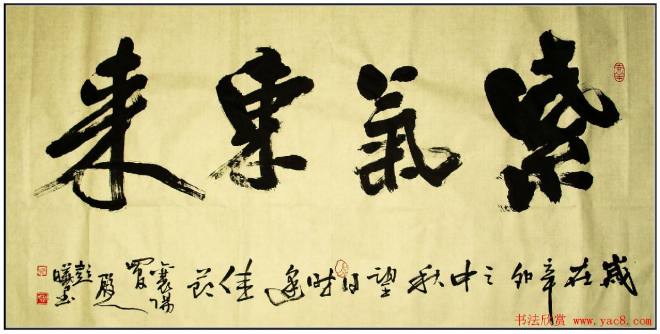 紫氣東来
歲在辛卯之中秋望日时逢佳节
襄陽
彭
书法欣赏 www.yac8.com